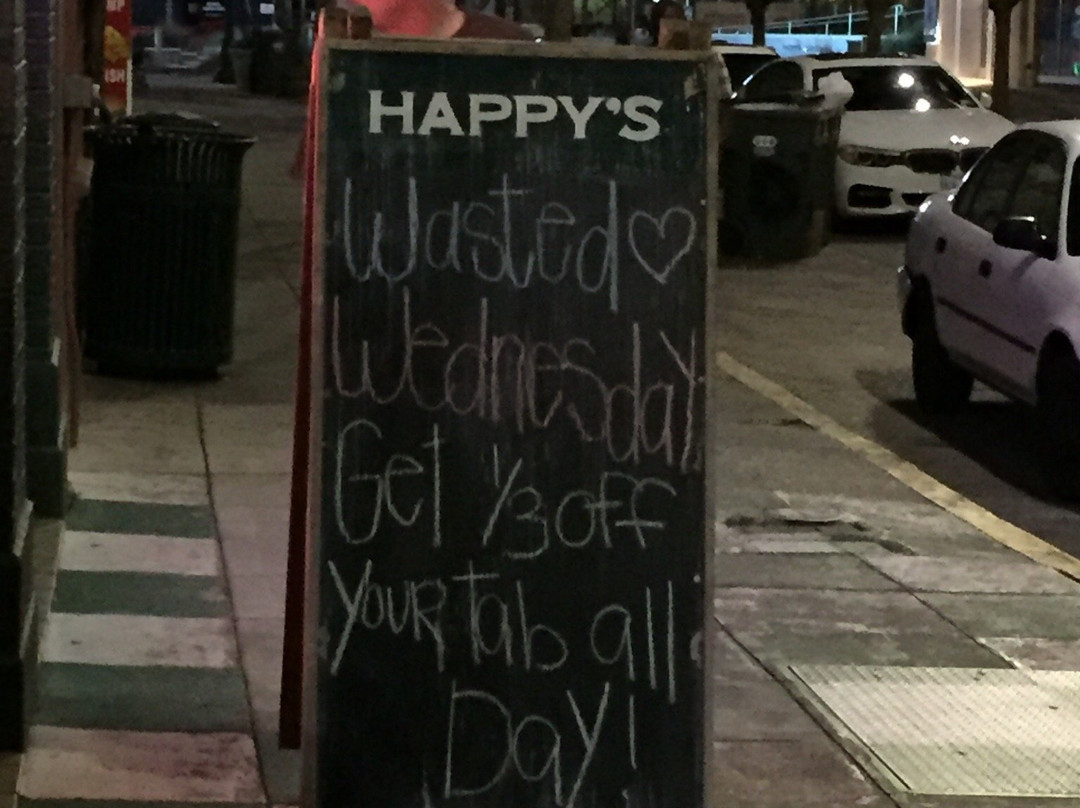 HAPPY'S
Wasted ♡
Wednesday
Get 1/3 off
your Tab all
Day!